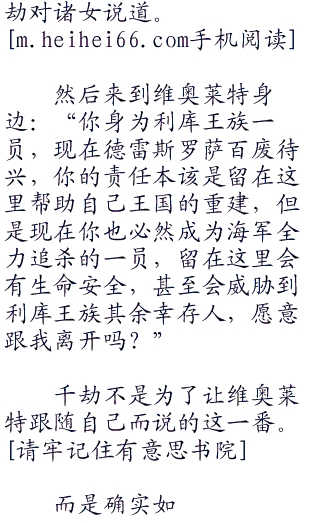 劫对诸女说道。
[m.heihei66.com手机阅读]
然后来到维奥莱特身
边：“你身为利库王族一
员，现在德雷斯罗萨百废待
兴，你的责任本该是留在这
里帮助自己王国的重建，但
是现在你也必然成为海军全
力追杀的一员，留在这里会
有生命安全，甚至会威胁到
利库王族其余幸存人，愿意
跟我离开吗？”
千劫不是为了让维奥莱
特跟随自己而说的这一番。
[请牢记住有意思书院]
而是确实如